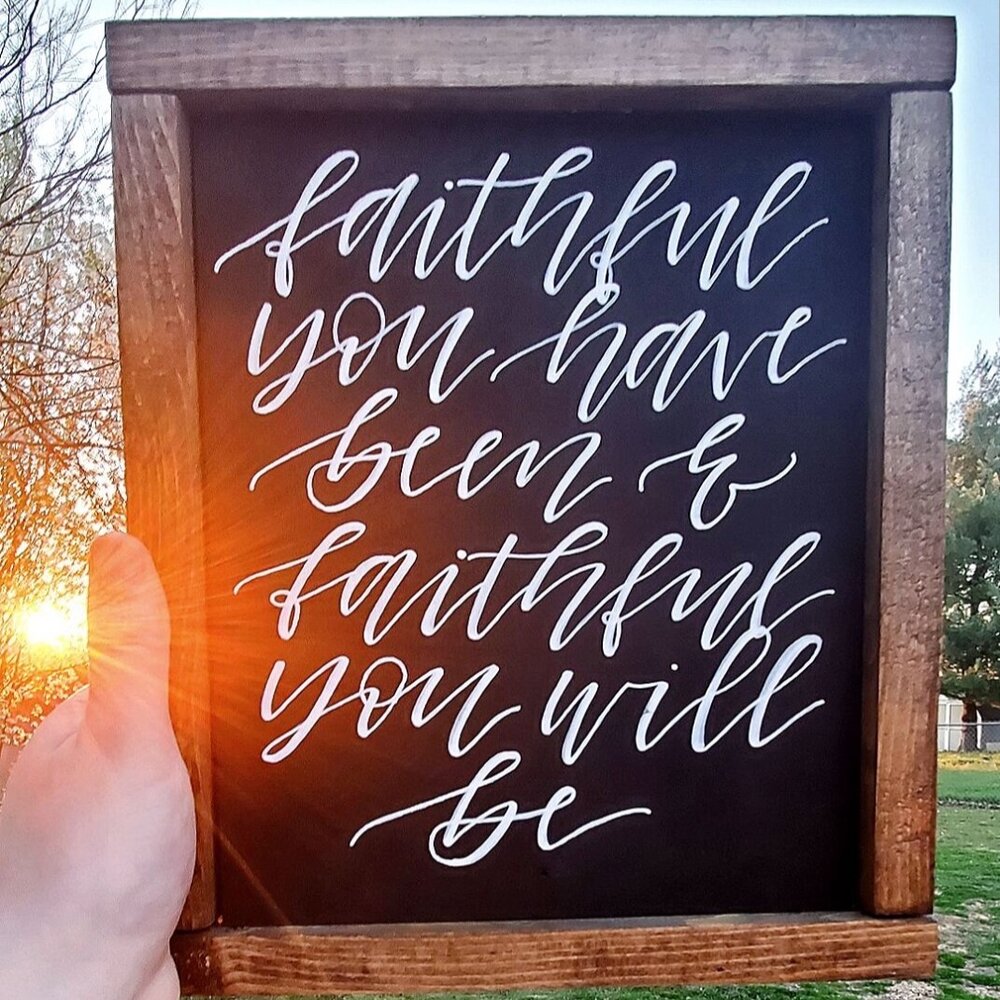 faithful
you have
been &
faithful
you will
be